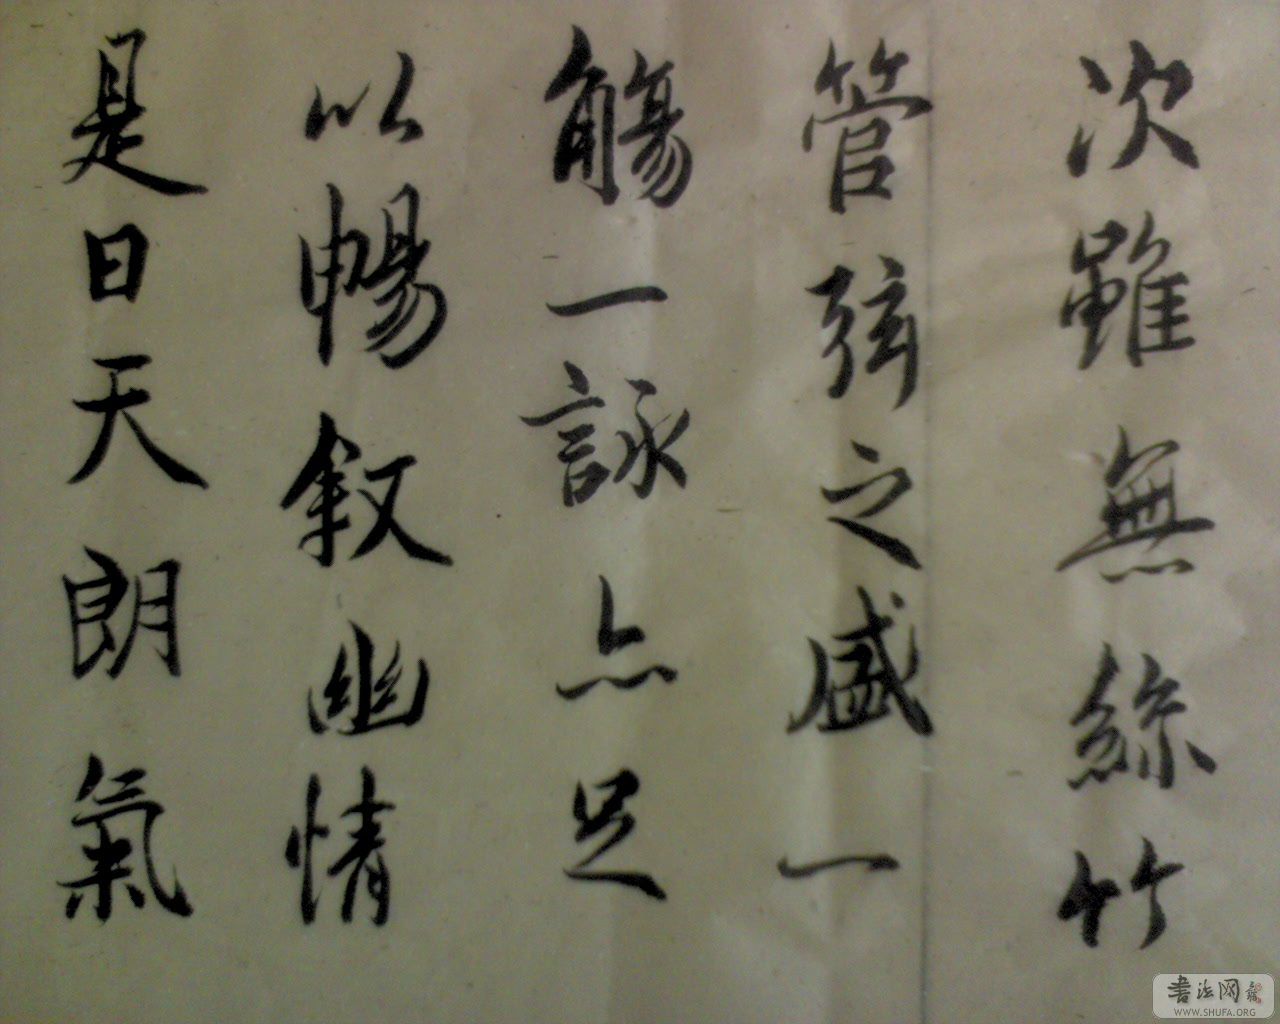 次雖無絲竹
管弦之盛一
觴一詠亦足
以暢敘幽情
是日天朗氣
書法网
WWW.SHUFA.ORG